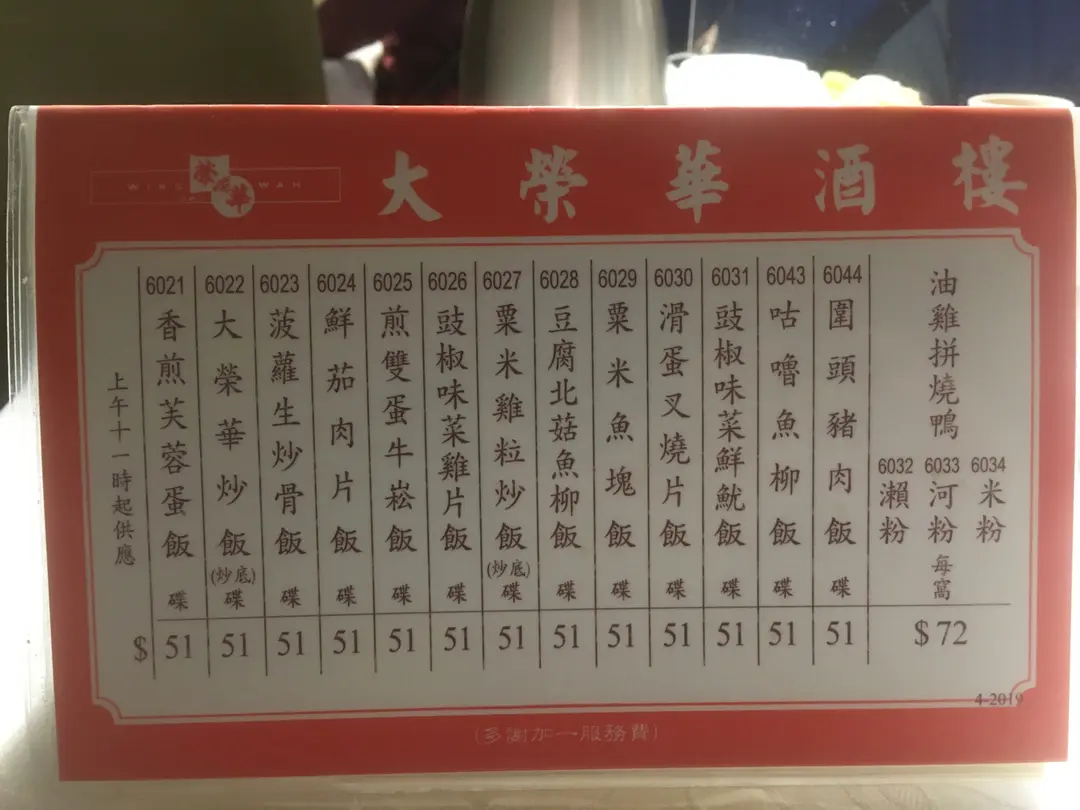 WING WAH
榮華
大榮華酒樓
上午十一時起供應
6021 香煎芙蓉蛋飯 碟 $51
6022 大榮華炒飯(炒底) 碟 51
6023 菠蘿生炒骨飯 碟 51
6024 鮮茄肉片飯 碟 51
6025 煎雙蛋牛崧飯 碟 51
6026 豉椒味菜雞片飯 碟 51
6027 粟米雞粒炒飯(炒底) 碟 51
6028 豆腐北菇魚柳飯 碟 51
6029 粟米魚塊飯 碟 51
6030 滑蛋叉燒片飯 碟 51
6031 豉椒味菜鮮魷飯 碟 51
6043 咕嚕魚柳飯 碟 51
6044 圍頭豬肉飯 碟 51
油雞拼燒鴨
6032 瀨粉
6033 河粉
6034 米粉
每窩
$72
4-2019
(多謝加一服務費)